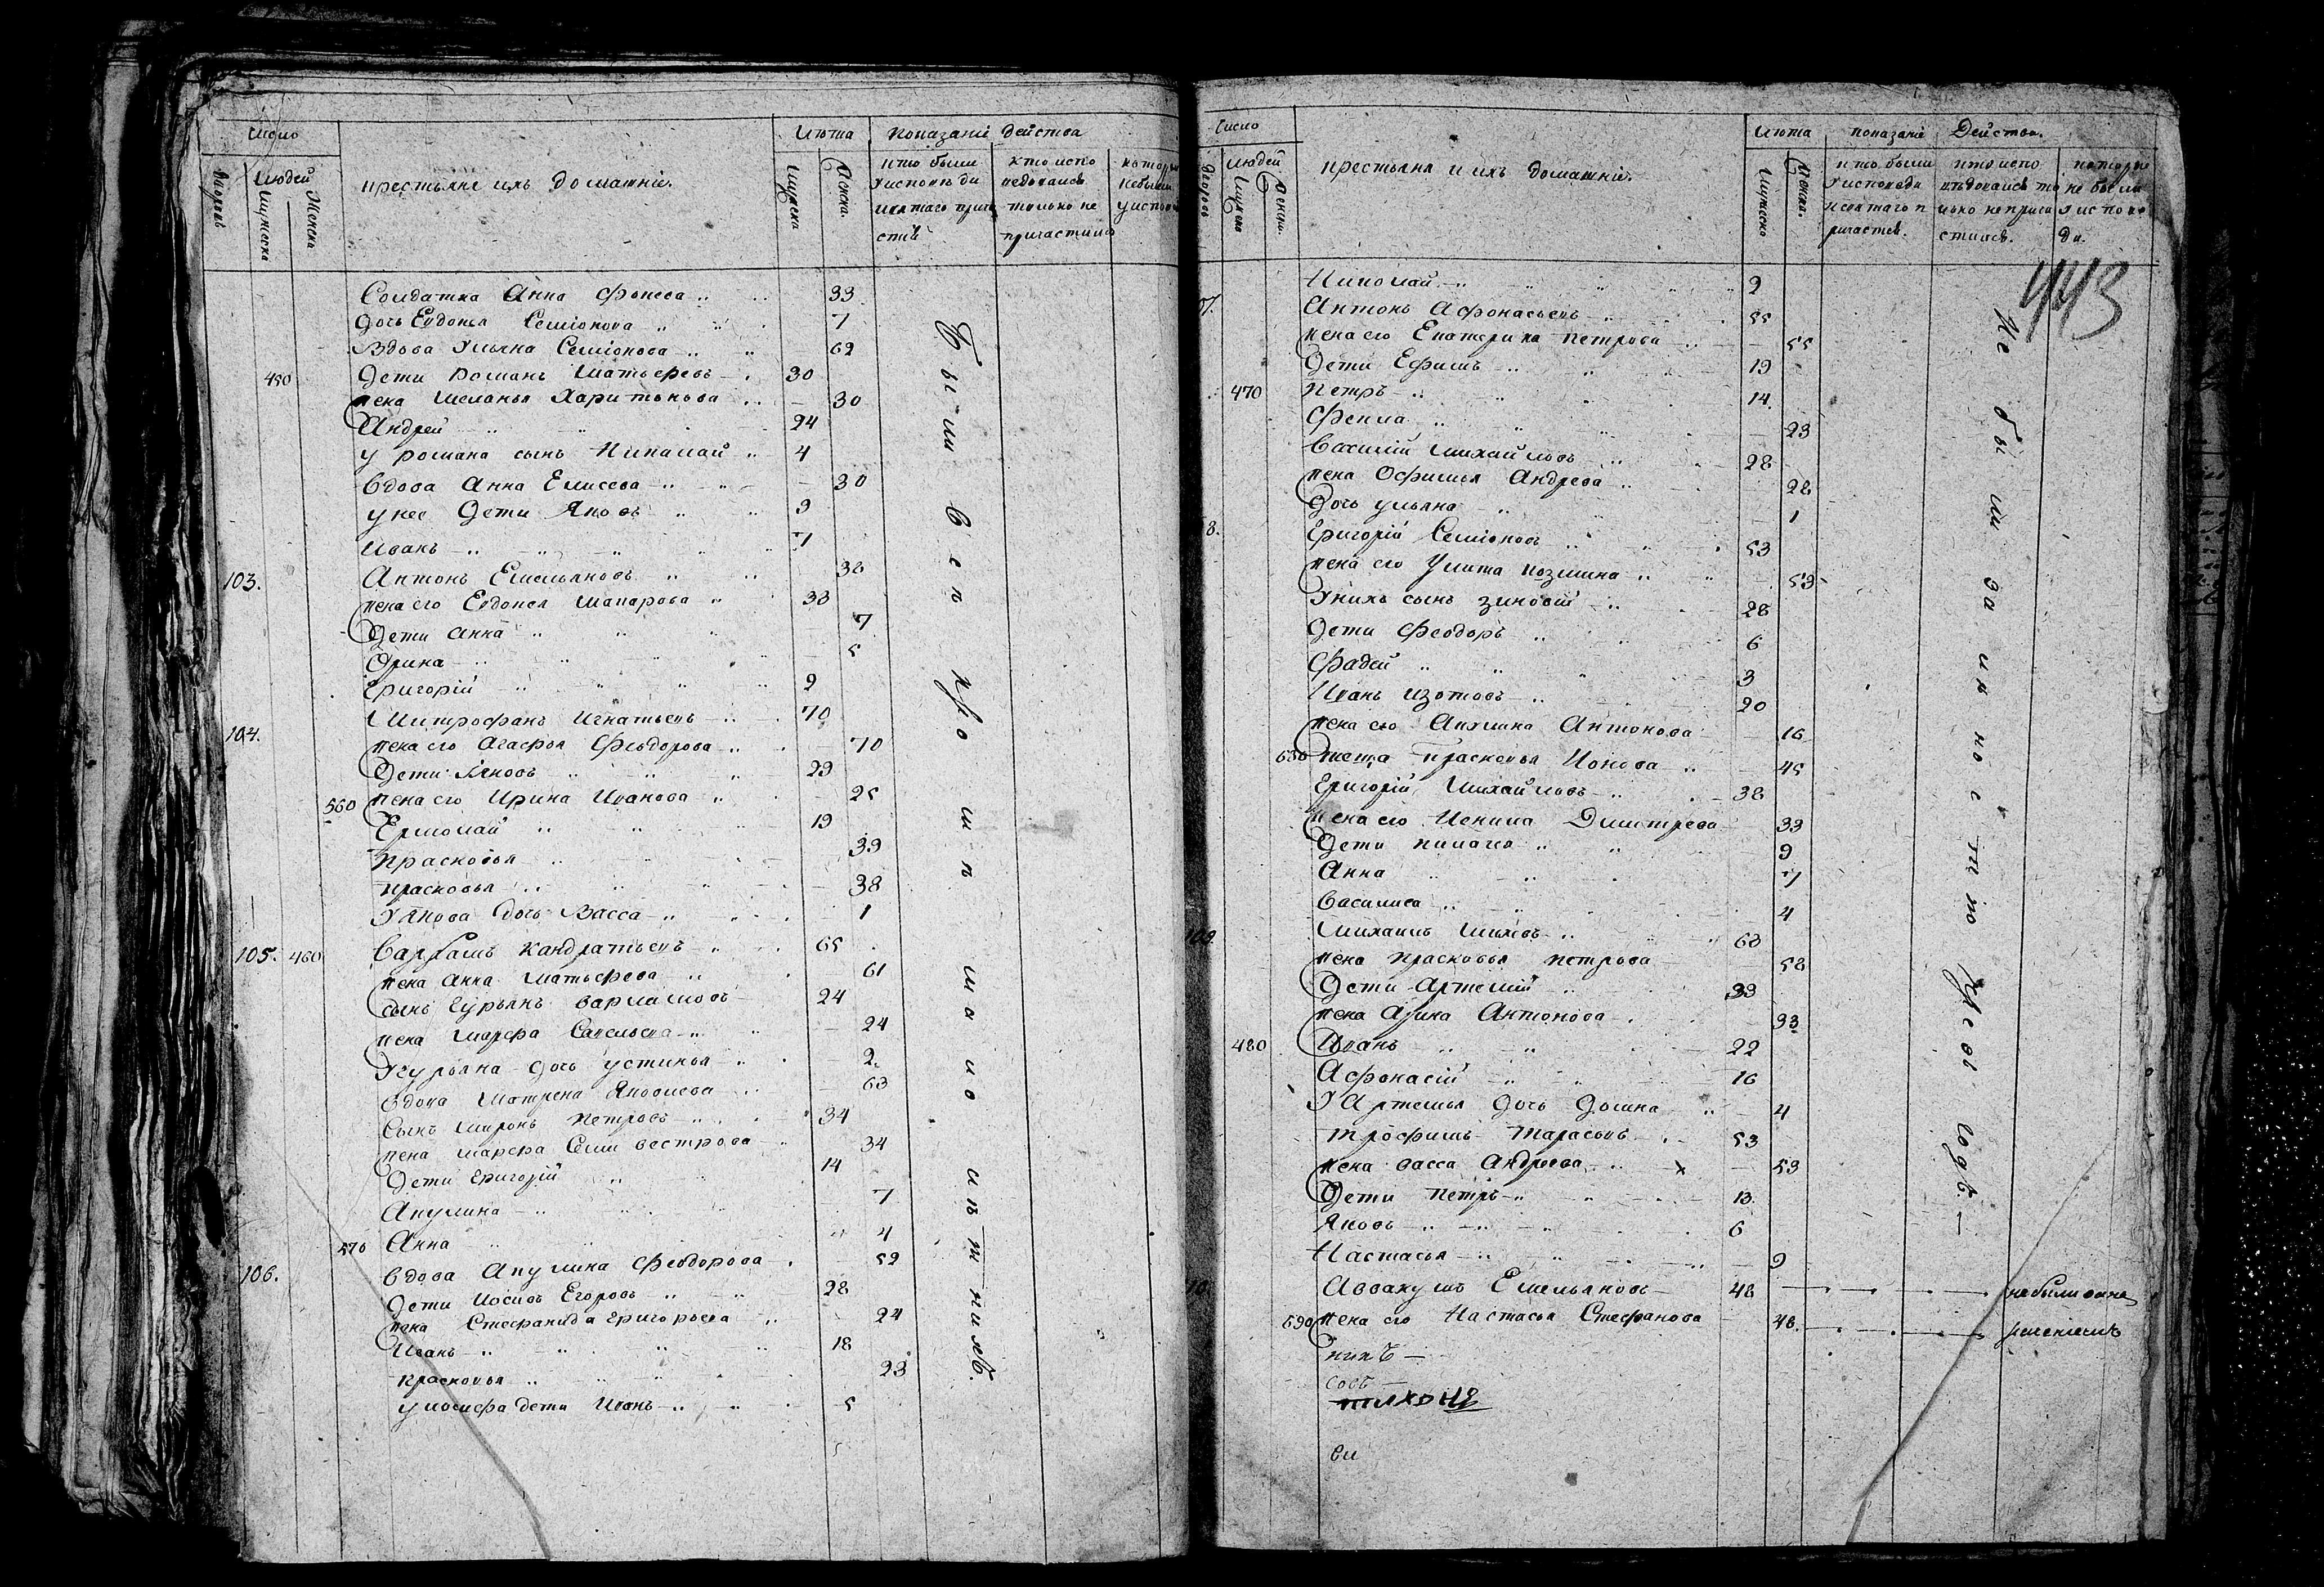 Число
Лѣта
Показаніе действа
Дворовъ
Людей
Мужеска
Женска
крестьяне ихъ домашніе.
Мужеска
Женска.
кто были
у исповѣди
и святаго прича
стія
кто испо
ведовался
только не
причастился
которы
небыли
у испове
Солдатка Анна Фокеева 33
дочь Евдокея Семіонова 7
Вдова Ульяна Семіонова 62
450 Дети Романъ Матьвревъ 30
жена Меланья Харитонова 30
Андрей 24
у романа сынъ Николай 4
вдова Анна Елисева 30
у нее Дети Яковъ 9
Иванъ 7
103. Антонъ Емельяновъ 38
жена его Евдокея Макарова 38
Дети Анна 7
Орина 5
Григорій 2
104. Митрофанъ Игнатьевъ 70
жена его Агафья Феодорова 70
Дети Яковъ 29
560 жена его Ирина Иванова 25
Ермолай 19
прасковья 39
прасковья 38
У Якова дочь Васса 1
105. 460 Варламъ Кандратьевъ 65
жена Анна Матьфеева 61
сынъ Гурьянъ варламовъ 24
жена Марфа Савельева 24
У гурьяна дочь устинья 2
вдова Матрена Яковлева 63
Сынъ Миронъ Петровъ 34
жена марфа Селивестрова 34
Дети Григорій 14
Акулина 7
570 Анна 4
106. вдова Акулина Феодорова 52
Дети Иосивъ Егоровъ 28
жена Стефанида григорьева 24
Иванъ 18
прасковья 23
у иосифа дети Иванъ 5
Были всп
Число
Дворовъ
Людей
Мужеска
Женска.
крестьяня и ихъ домашніе.
Лѣта
Мужеско
Женска.
показаніе Действа.
кто были
у исповеди
и святаго п
ричастія.
кто испо
ведовался то
лько не прича
стился.
которы
не были
у испове
ди.
443
Николай 2
07. Антонъ Афонасьевъ 55
жена его Екатерина петрова 55
Дети Ефимъ 19
470 Петръ 14
Фекла 23
Василій Михайловъ 28
жена Офимья Андрева 28
Дочь ульяна 1
8. Григорій Семіоновъ 53
жена его Улита козмина 53
У нихъ сынъ зиновій 28
Дети Феодоръ 6
Фадей 3
Иванъ изотовъ 20
жена его Акулина Антонова 16
580 теща прасковья Ионова 45
Григорій Михайловъ 38
жена его Ненила Дмитрева 33
Дети пилагея 9
Анна 7
Василиса 4
109. Михаилъ 60
жена прасковья петрова 58
Дети Артемій 33
жена Арина Антонова 33
480 Иванъ 22
Афонасій 16
У Артемья дочь Домна 4
Трофимъ Тарасовъ 53
жена васса Андреева х 53
Дети Петръ 13
Яковъ 6
Настасья 9
10. Аввакумъ Емельяновъ 48 небыли зане
590 жена его Настасья Стефанова 48
нихъ
Не были за ихъ ностию прев годѣ.